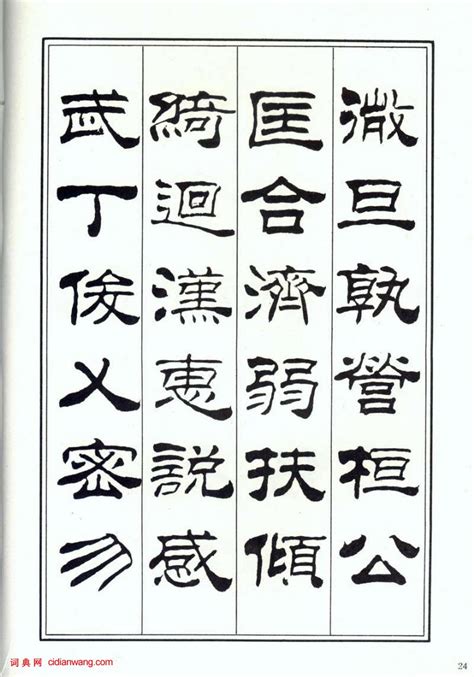 微旦孰營桓公
匡合濟弱扶傾
綺迴漢惠說感
武丁俊乂密勿
24
词典网 cidianwang.com